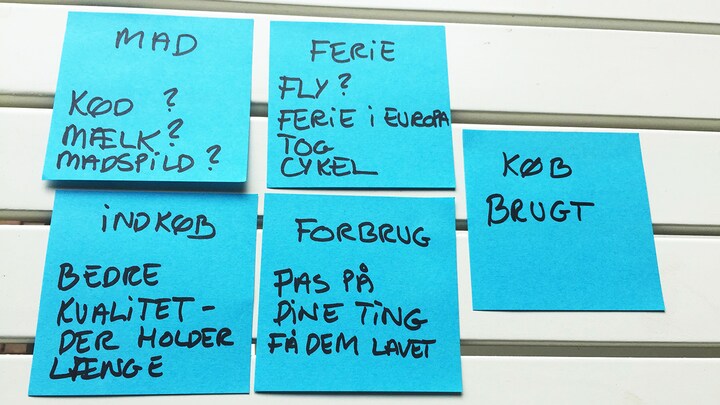 MAD
KØD ?
MÆLK?
MADSPILD ?
FERIE
FLY?
FERIE I EUROPA
TOG
CYKEL
KØB
BRUGT
INDKØB
BEDRE
KVALITET -
DER HOLDER
LÆNGE
FORBRUG
PAS PÅ
DINE TING
FÅ DEM LAVET